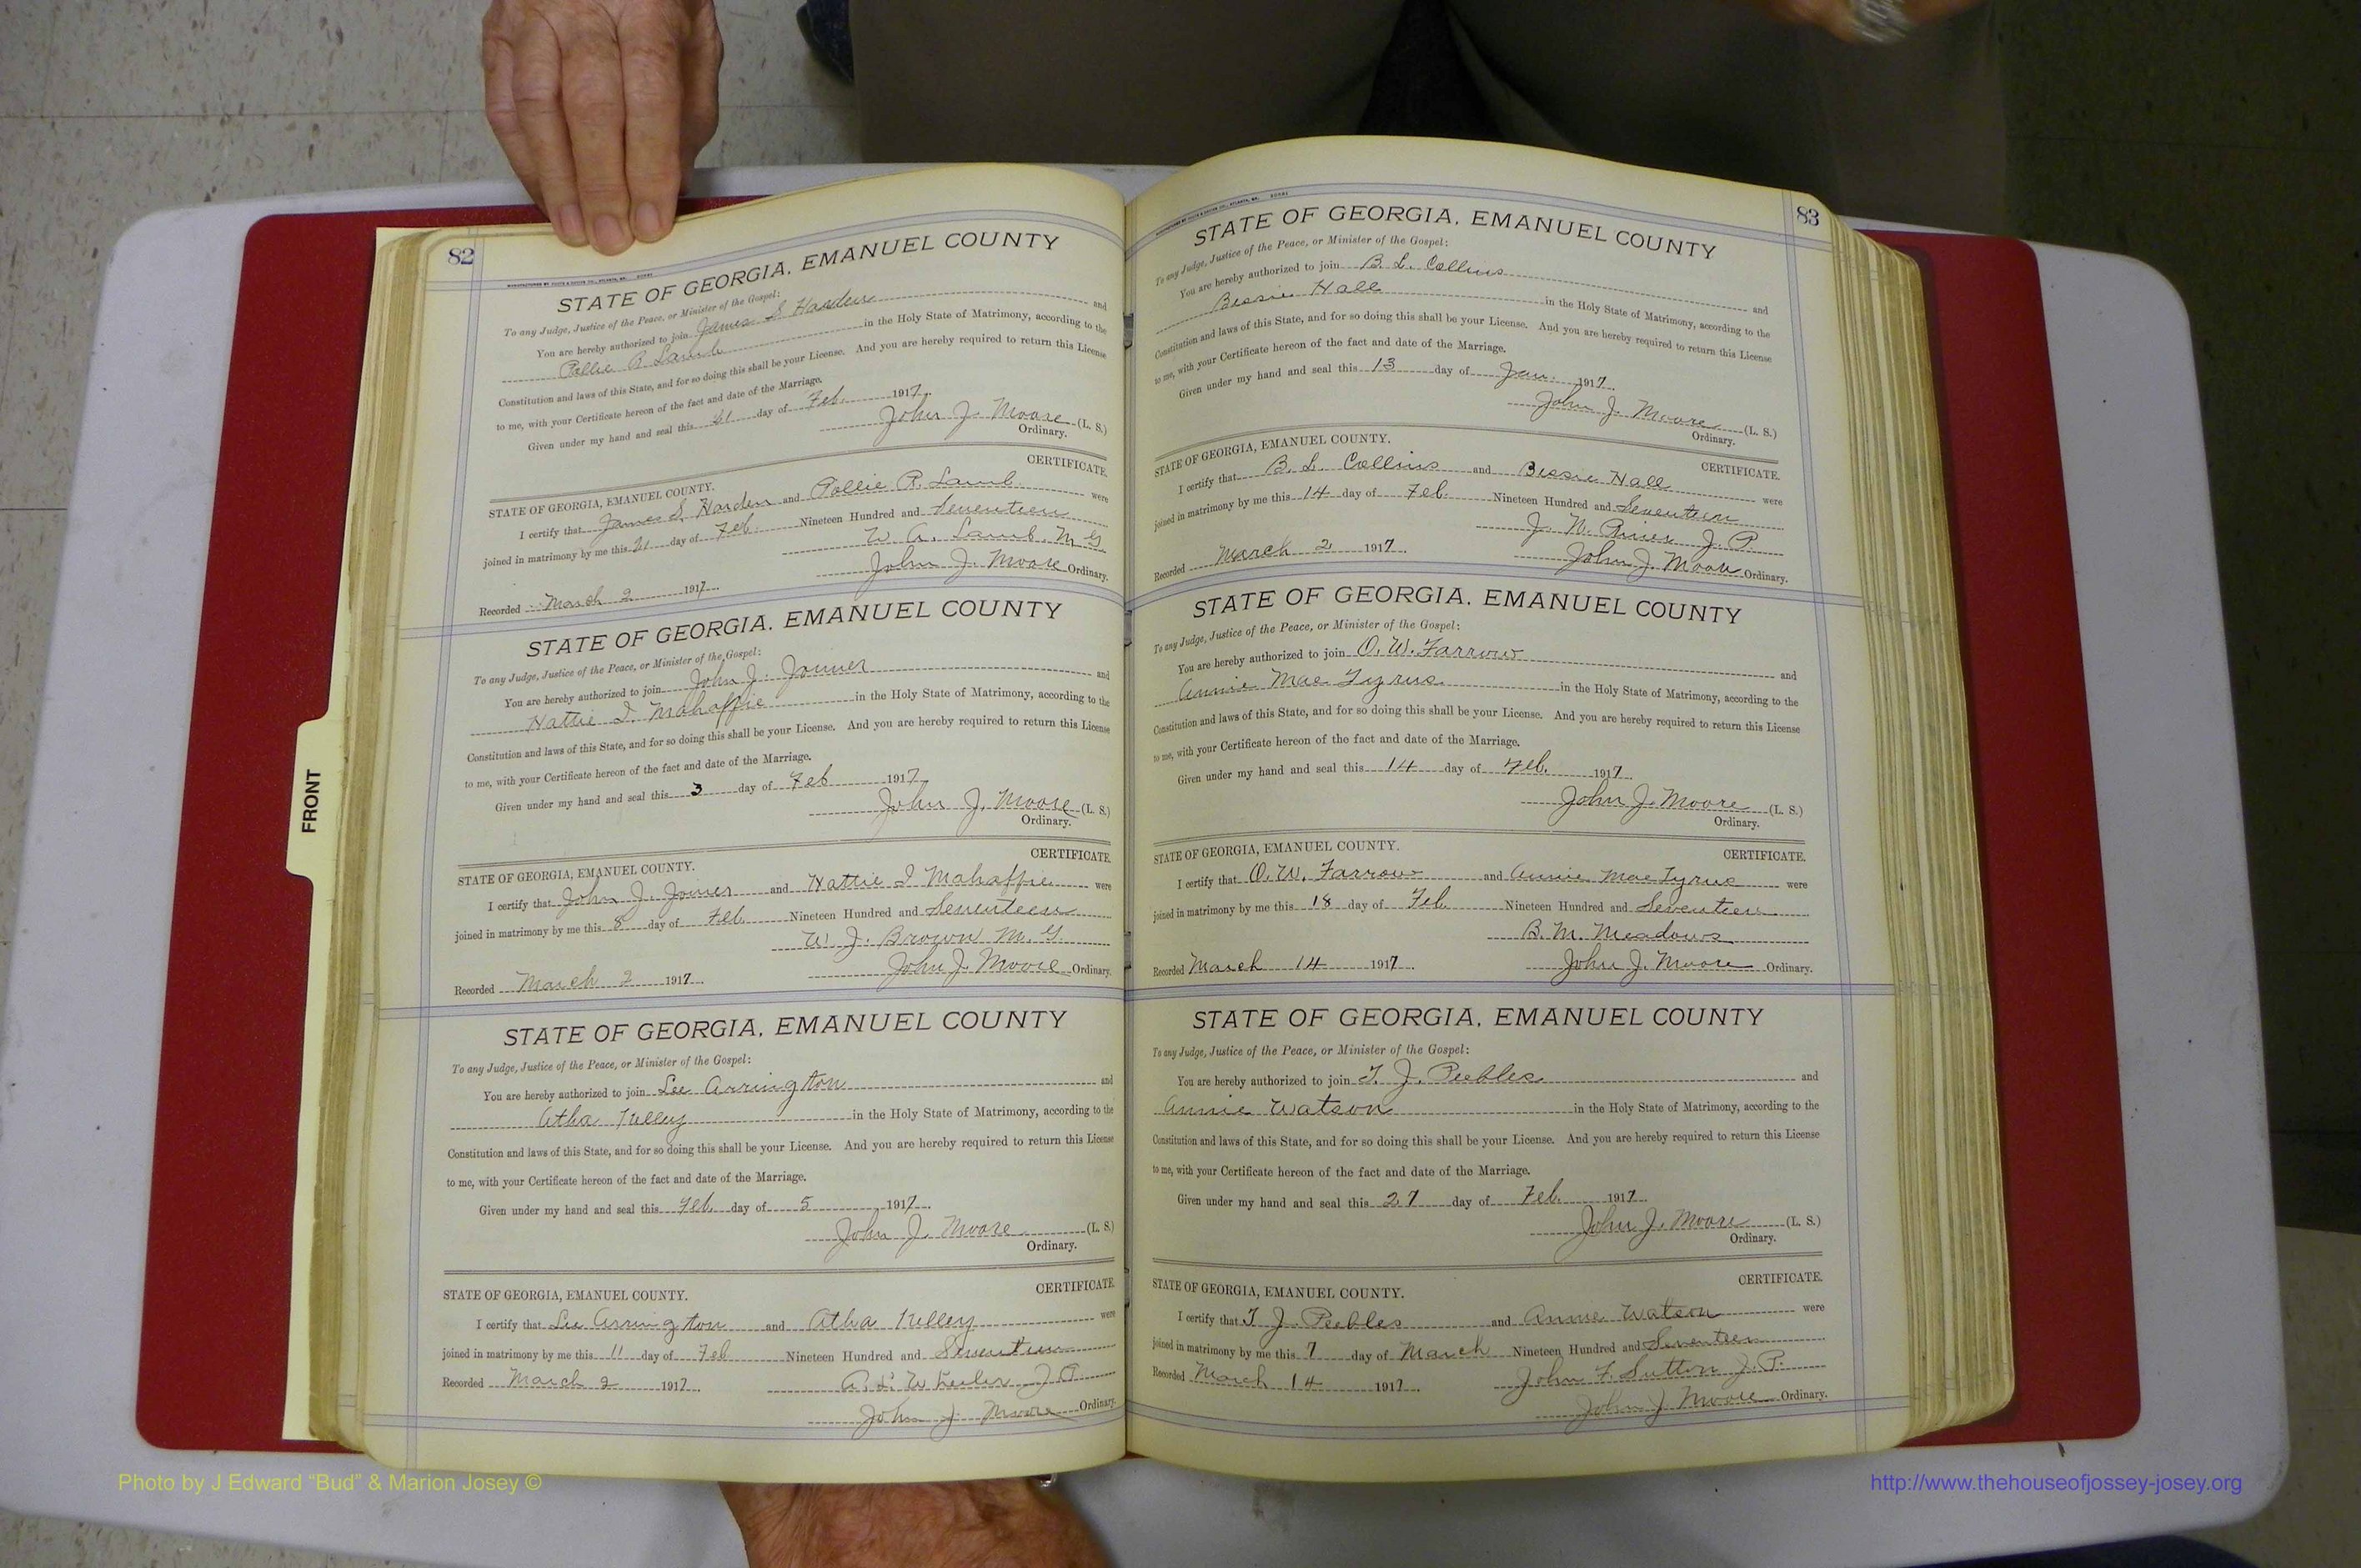 82
STATE OF GEORGIA, EMANUEL COUNTY
To any Judge, Justice of the Peace, or Minister of the Gospel:
You are hereby authorized to join James S. Harden and
Pollie R Lamb in the Holy State of Matrimony, according to the
Constitution and laws of this State, and for so doing this shall be your License. And you are hereby required to return this License
to me, with your Certificate hereon of the fact and date of the Marriage.
Given under my hand and seal this 21 day of Feb. 1917.
John J. Moore (L. S.)
Ordinary.
CERTIFICATE
STATE OF GEORGIA, EMANUEL COUNTY.
I certify that James S. Harden and Pollie R. Lamb were
joined in matrimony by me this 21 day of Feb. Nineteen Hundred and Seventeen
W. A. Lamb. M G.
Recorded March 2 1917. John J. Moore Ordinary.
STATE OF GEORGIA, EMANUEL COUNTY
To any Judge, Justice of the Peace, or Minister of the Gospel:
You are hereby authorized to join John J. Joiner and
Hattie I. Mahaffie in the Holy State of Matrimony, according to the
Constitution and laws of this State, and for so doing this shall be your License. And you are hereby required to return this License
to me, with your Certificate hereon of the fact and date of the Marriage.
Given under my hand and seal this 3 day of Feb 1917
John J. Moore (L. S.)
Ordinary.
CERTIFICATE
STATE OF GEORGIA, EMANUEL COUNTY.
I certify that John J. Joiner and Hattie I Mahaffie were
joined in matrimony by me this 8 day of Feb Nineteen Hundred and Seventeen
W J. Brown M. G.
Recorded March 2 1917. John J. Moore Ordinary.
STATE OF GEORGIA, EMANUEL COUNTY
To any Judge, Justice of the Peace, or Minister of the Gospel:
You are hereby authorized to join Lee Arrington and
Atha Kelley in the Holy State of Matrimony, according to the
Constitution and laws of this State, and for so doing this shall be your License. And you are hereby required to return this License
to me, with your Certificate hereon of the fact and date of the Marriage.
Given under my hand and seal this Feb. day of 5 1917.
John J. Moore (L. S.)
Ordinary.
CERTIFICATE
STATE OF GEORGIA, EMANUEL COUNTY.
I certify that Lee Arrington and Atha Kelley were
joined in matrimony by me this 11 day of Feb Nineteen Hundred and Seventeen
Recorded March 2 1917. A. L. Wheeler J P
John J Moore Ordinary
83
STATE OF GEORGIA, EMANUEL COUNTY
To any Judge, Justice of the Peace, or Minister of the Gospel:
You are hereby authorized to join B. L. Collins and
Bessie Hall in the Holy State of Matrimony, according to the
Constitution and laws of this State, and for so doing this shall be your License. And you are hereby required to return this License
to me, with your Certificate hereon of the fact and date of the Marriage.
Given under my hand and seal this 13 day of Jan. 1917.
John J. Moore (L. S.)
Ordinary.
STATE OF GEORGIA, EMANUEL COUNTY.
CERTIFICATE.
I certify that B. L. Collins and Bessie Hall were
joined in matrimony by me this 14 day of Feb. Nineteen Hundred and Seventeen
J. N. J. P.
Recorded March 2 1917. John J. Moore Ordinary.
STATE OF GEORGIA, EMANUEL COUNTY
To any Judge, Justice of the Peace, or Minister of the Gospel:
You are hereby authorized to join O. W. Farrow and
Annie Mae Tyrus in the Holy State of Matrimony, according to the
Constitution and laws of this State, and for so doing this shall be your License. And you are hereby required to return this License
to me, with your Certificate hereon of the fact and date of the Marriage.
Given under my hand and seal this 14 day of Feb. 1917.
John J. Moore (L. S.)
Ordinary.
STATE OF GEORGIA, EMANUEL COUNTY.
CERTIFICATE.
I certify that O. W. Farrow and Annie Mae Tyrus were
joined in matrimony by me this 18 day of Feb Nineteen Hundred and Seventeen
B. M. Meadows
Recorded March 14 1917. John J. Moore Ordinary.
STATE OF GEORGIA, EMANUEL COUNTY
To any Judge, Justice of the Peace, or Minister of the Gospel:
You are hereby authorized to join T. J. Peebles and
Annie Watson in the Holy State of Matrimony, according to the
Constitution and laws of this State, and for so doing this shall be your License. And you are hereby required to return this License
to me, with your Certificate hereon of the fact and date of the Marriage.
Given under my hand and seal this 27 day of Feb. 1917.
John J. Moore (L. S.)
Ordinary.
STATE OF GEORGIA, EMANUEL COUNTY.
CERTIFICATE.
I certify that T J. Peebles and Annie Watson were
joined in matrimony by me this 7 day of March Nineteen Hundred and Seventeen
Recorded March 14 1917. John F. Sutton J. P.
John J Moore Ordinary.
FRONT
Photo by J Edward “Bud” & Marion Josey ©
http://www.thehouseofjossey-josey.org